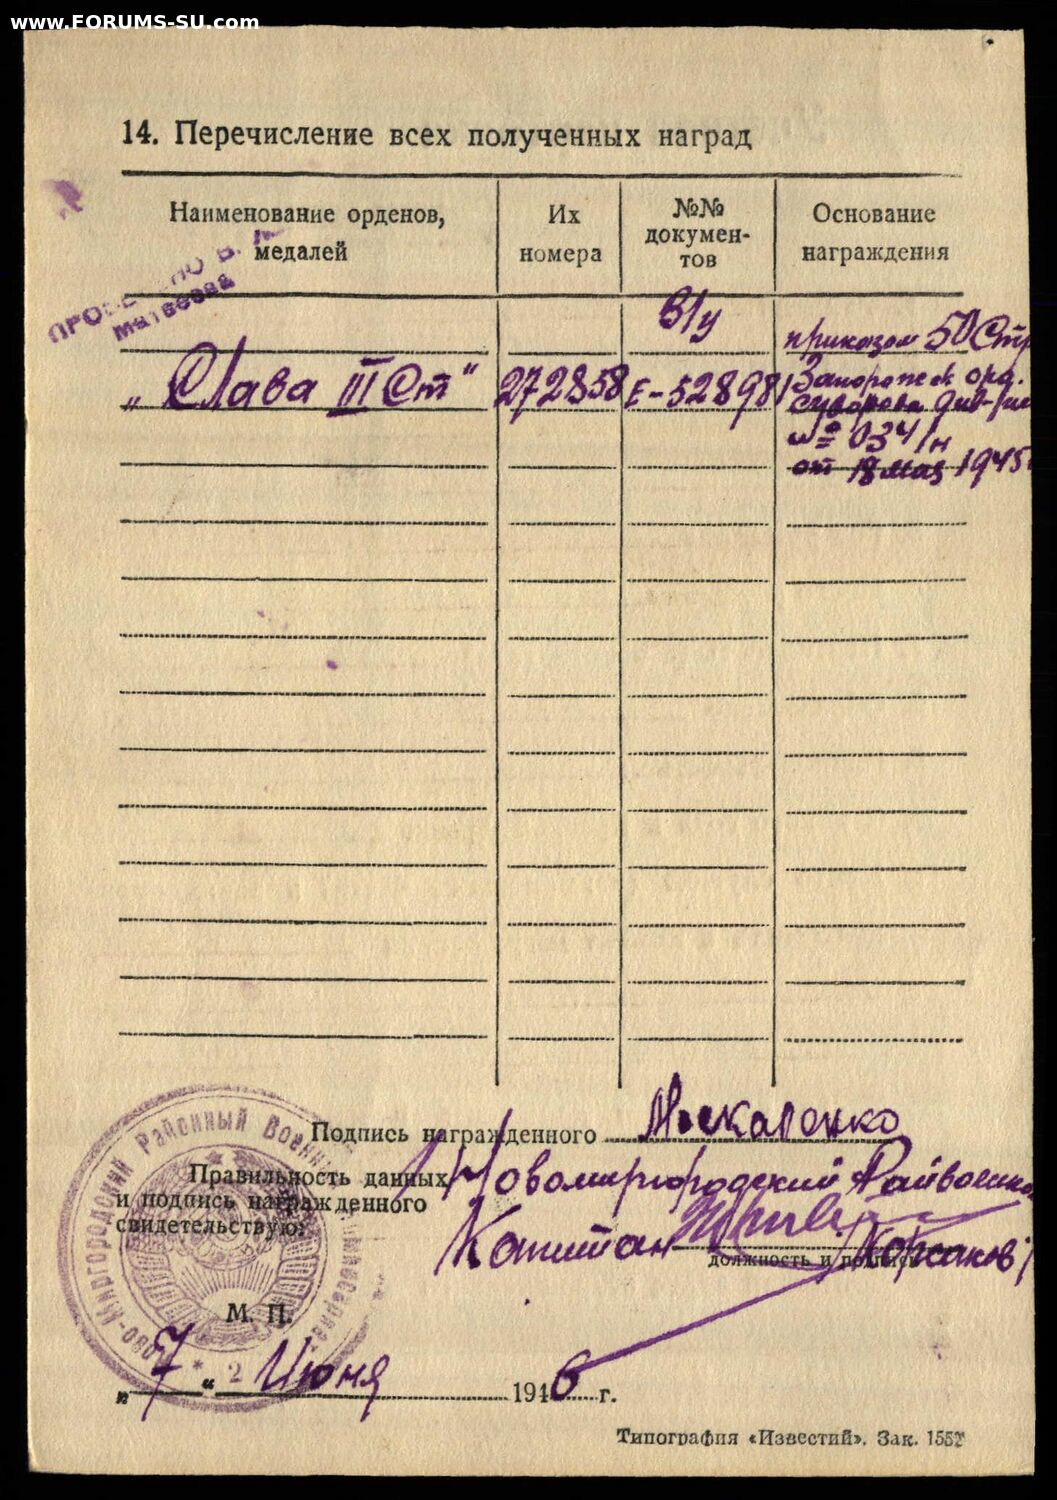 www.FORUMS-SU.com
14. Перечисление всех полученных наград
Наименование орденов, медалей
Их номера
№№ докумен-тов
Основание награждения
Матвеева
в/у
„Слава III Ст“
272858
Е-528981
приказом 50 Стр
Запорожск орд.
Суворова див-ии
№ 034/н
от 18 мая 1945
Подпись награжденного Москаленко
Правильность данных
и подпись награжденного
свидетельствую:
Новомиргородский Райвоенко
Капитан
/Корсаков/
должность и подпись
М. П.
Ново-Миргородский Районный Военный Комиссариат * 2
„7“ Июня 1946 г.
Типография «Известий». Зак. 1552